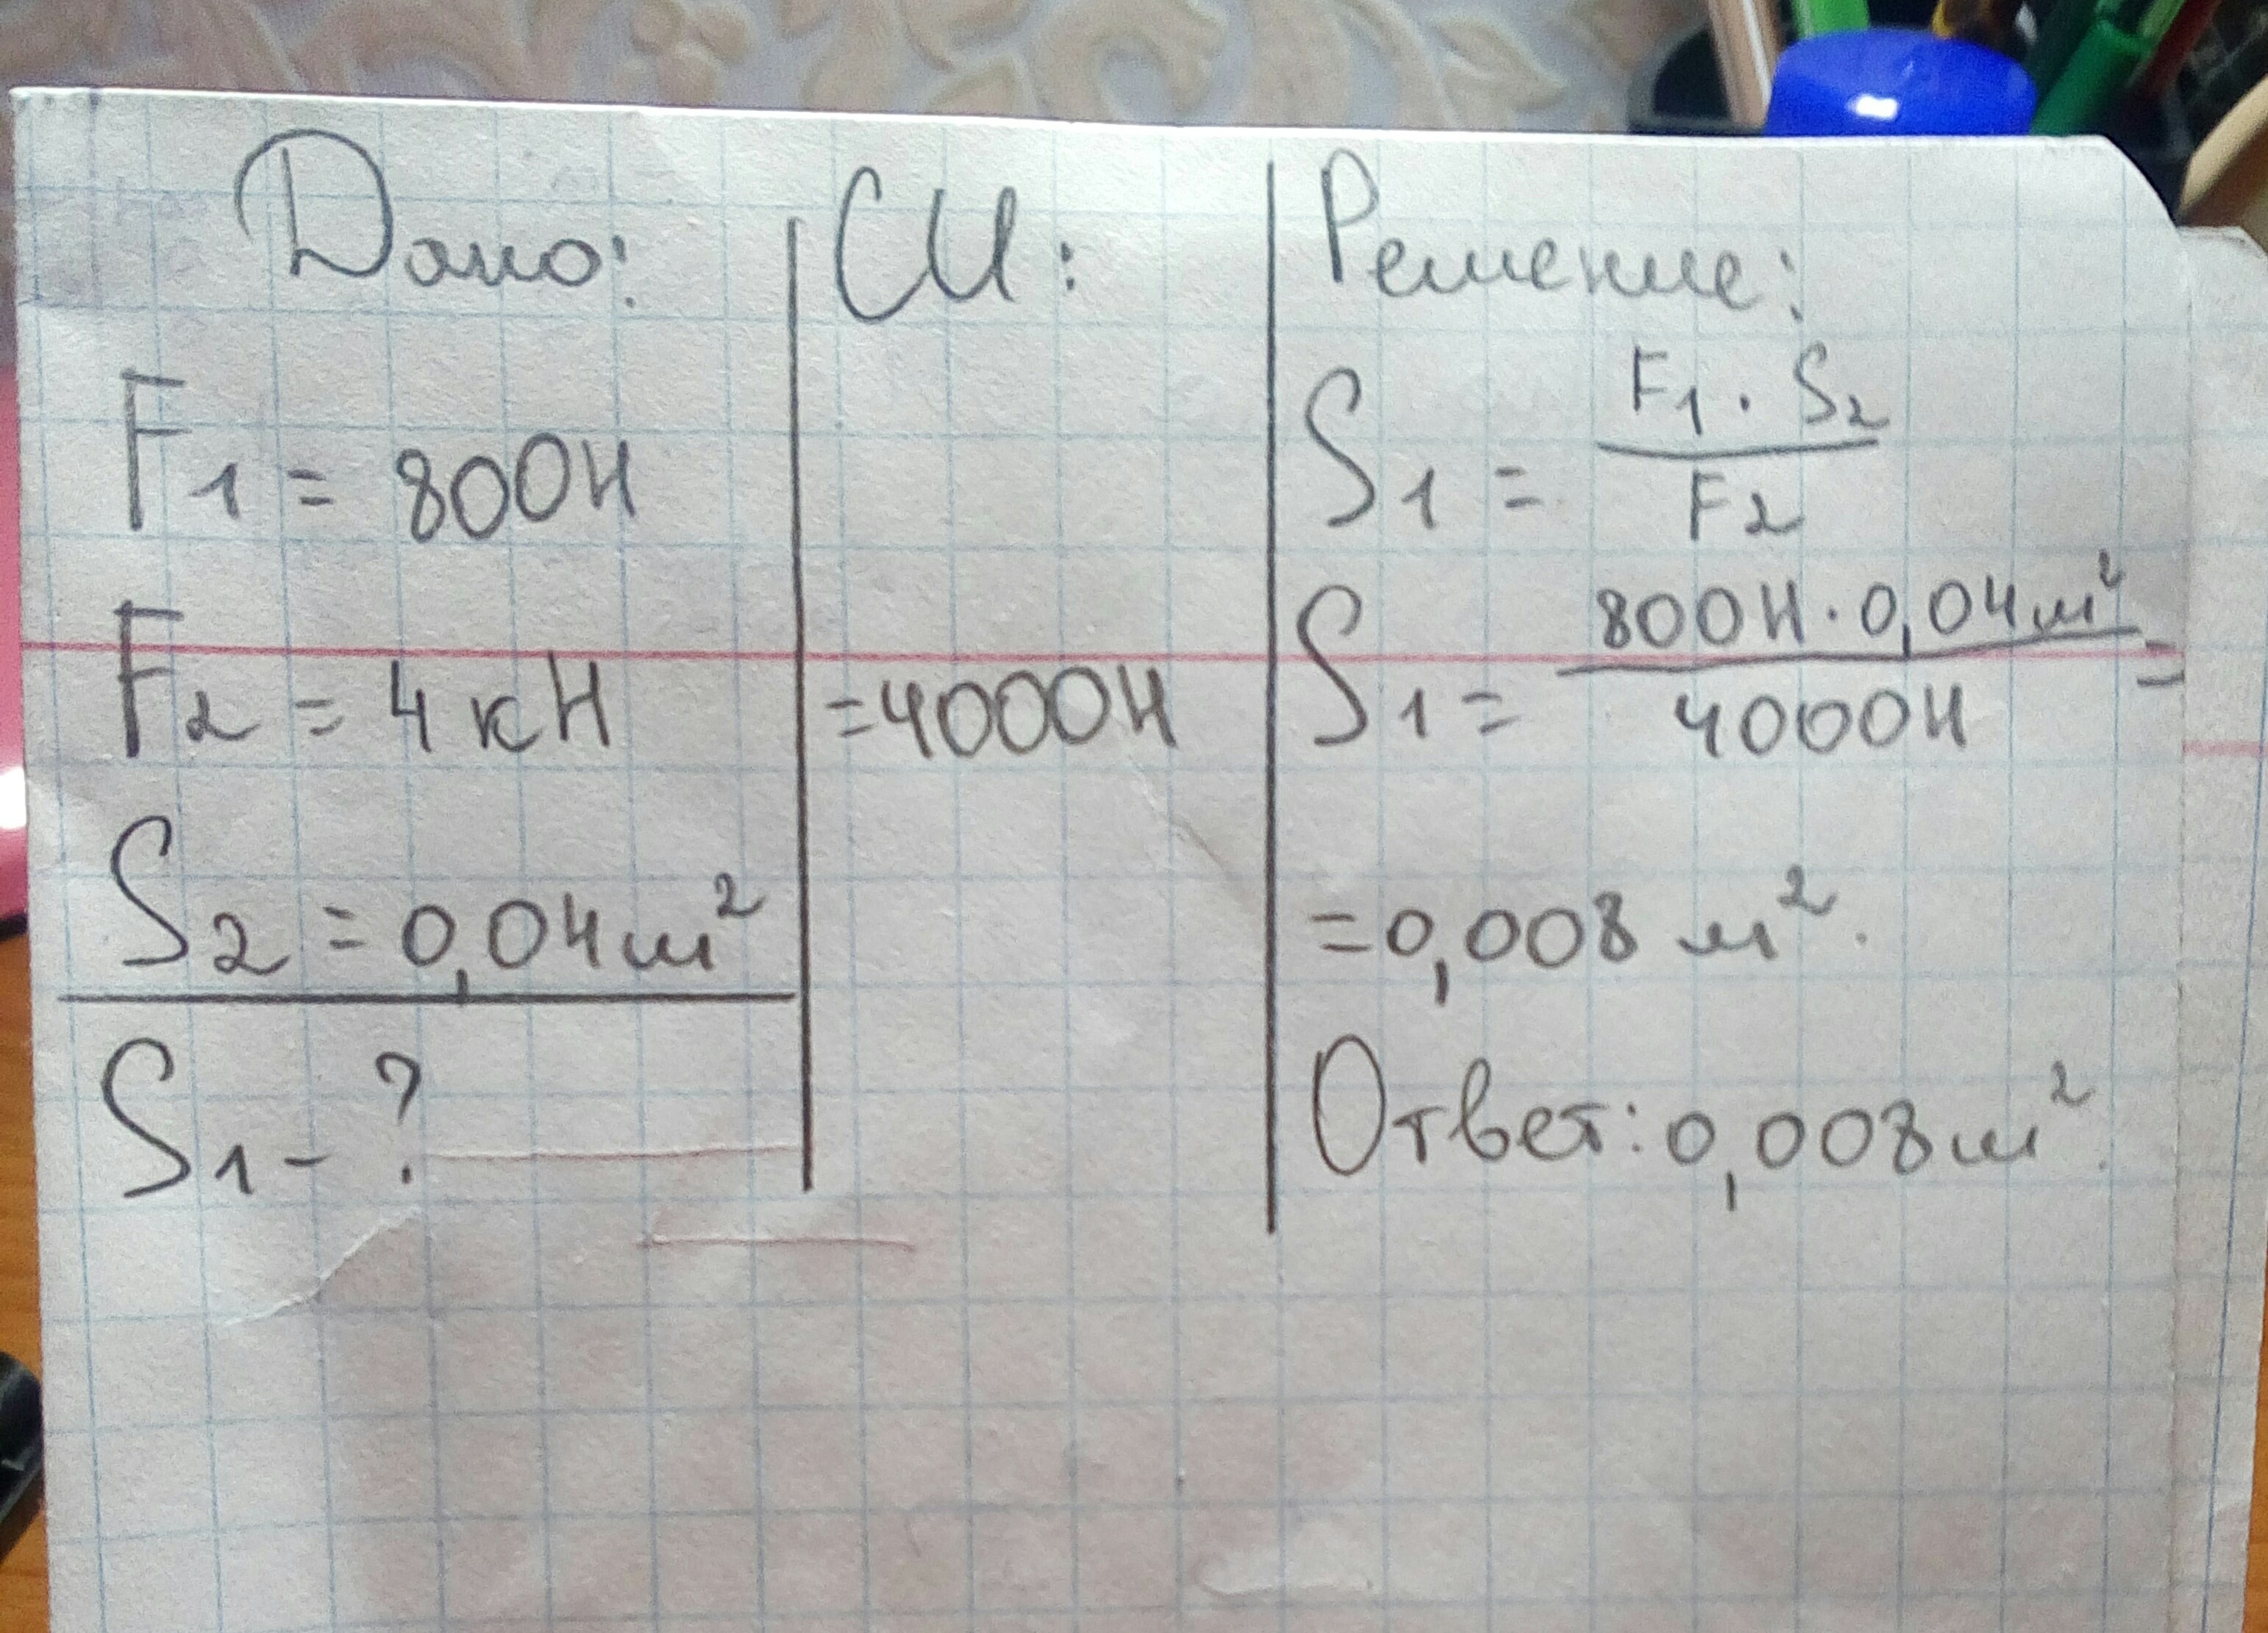 Дано:
F₁ = 800Н
F₂ = 4 кН
S₂ = 0,04м²
S₁ - ?
СИ:
=4000Н
Решение:
S₁ = F₁ · S₂ / F₂
S₁ = 800Н · 0,04м² / 4000Н =
=0,008 м².
Ответ: 0,008м².